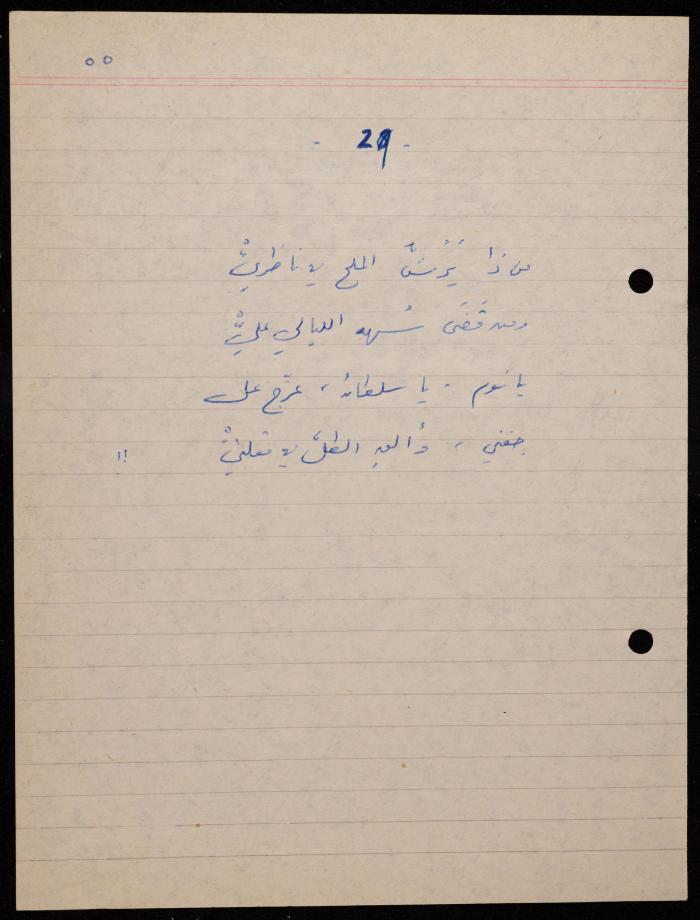 ٥٥
- 29 -
من ذا يَرُشُّ الملح في ناظريّْ
ومن قَضَى سُهد الليالي عليّْ
يا نوم . يا سلطانُ ، عرّج على
جفني ، وألقِ الظلَّ في مقلتيّْ !!